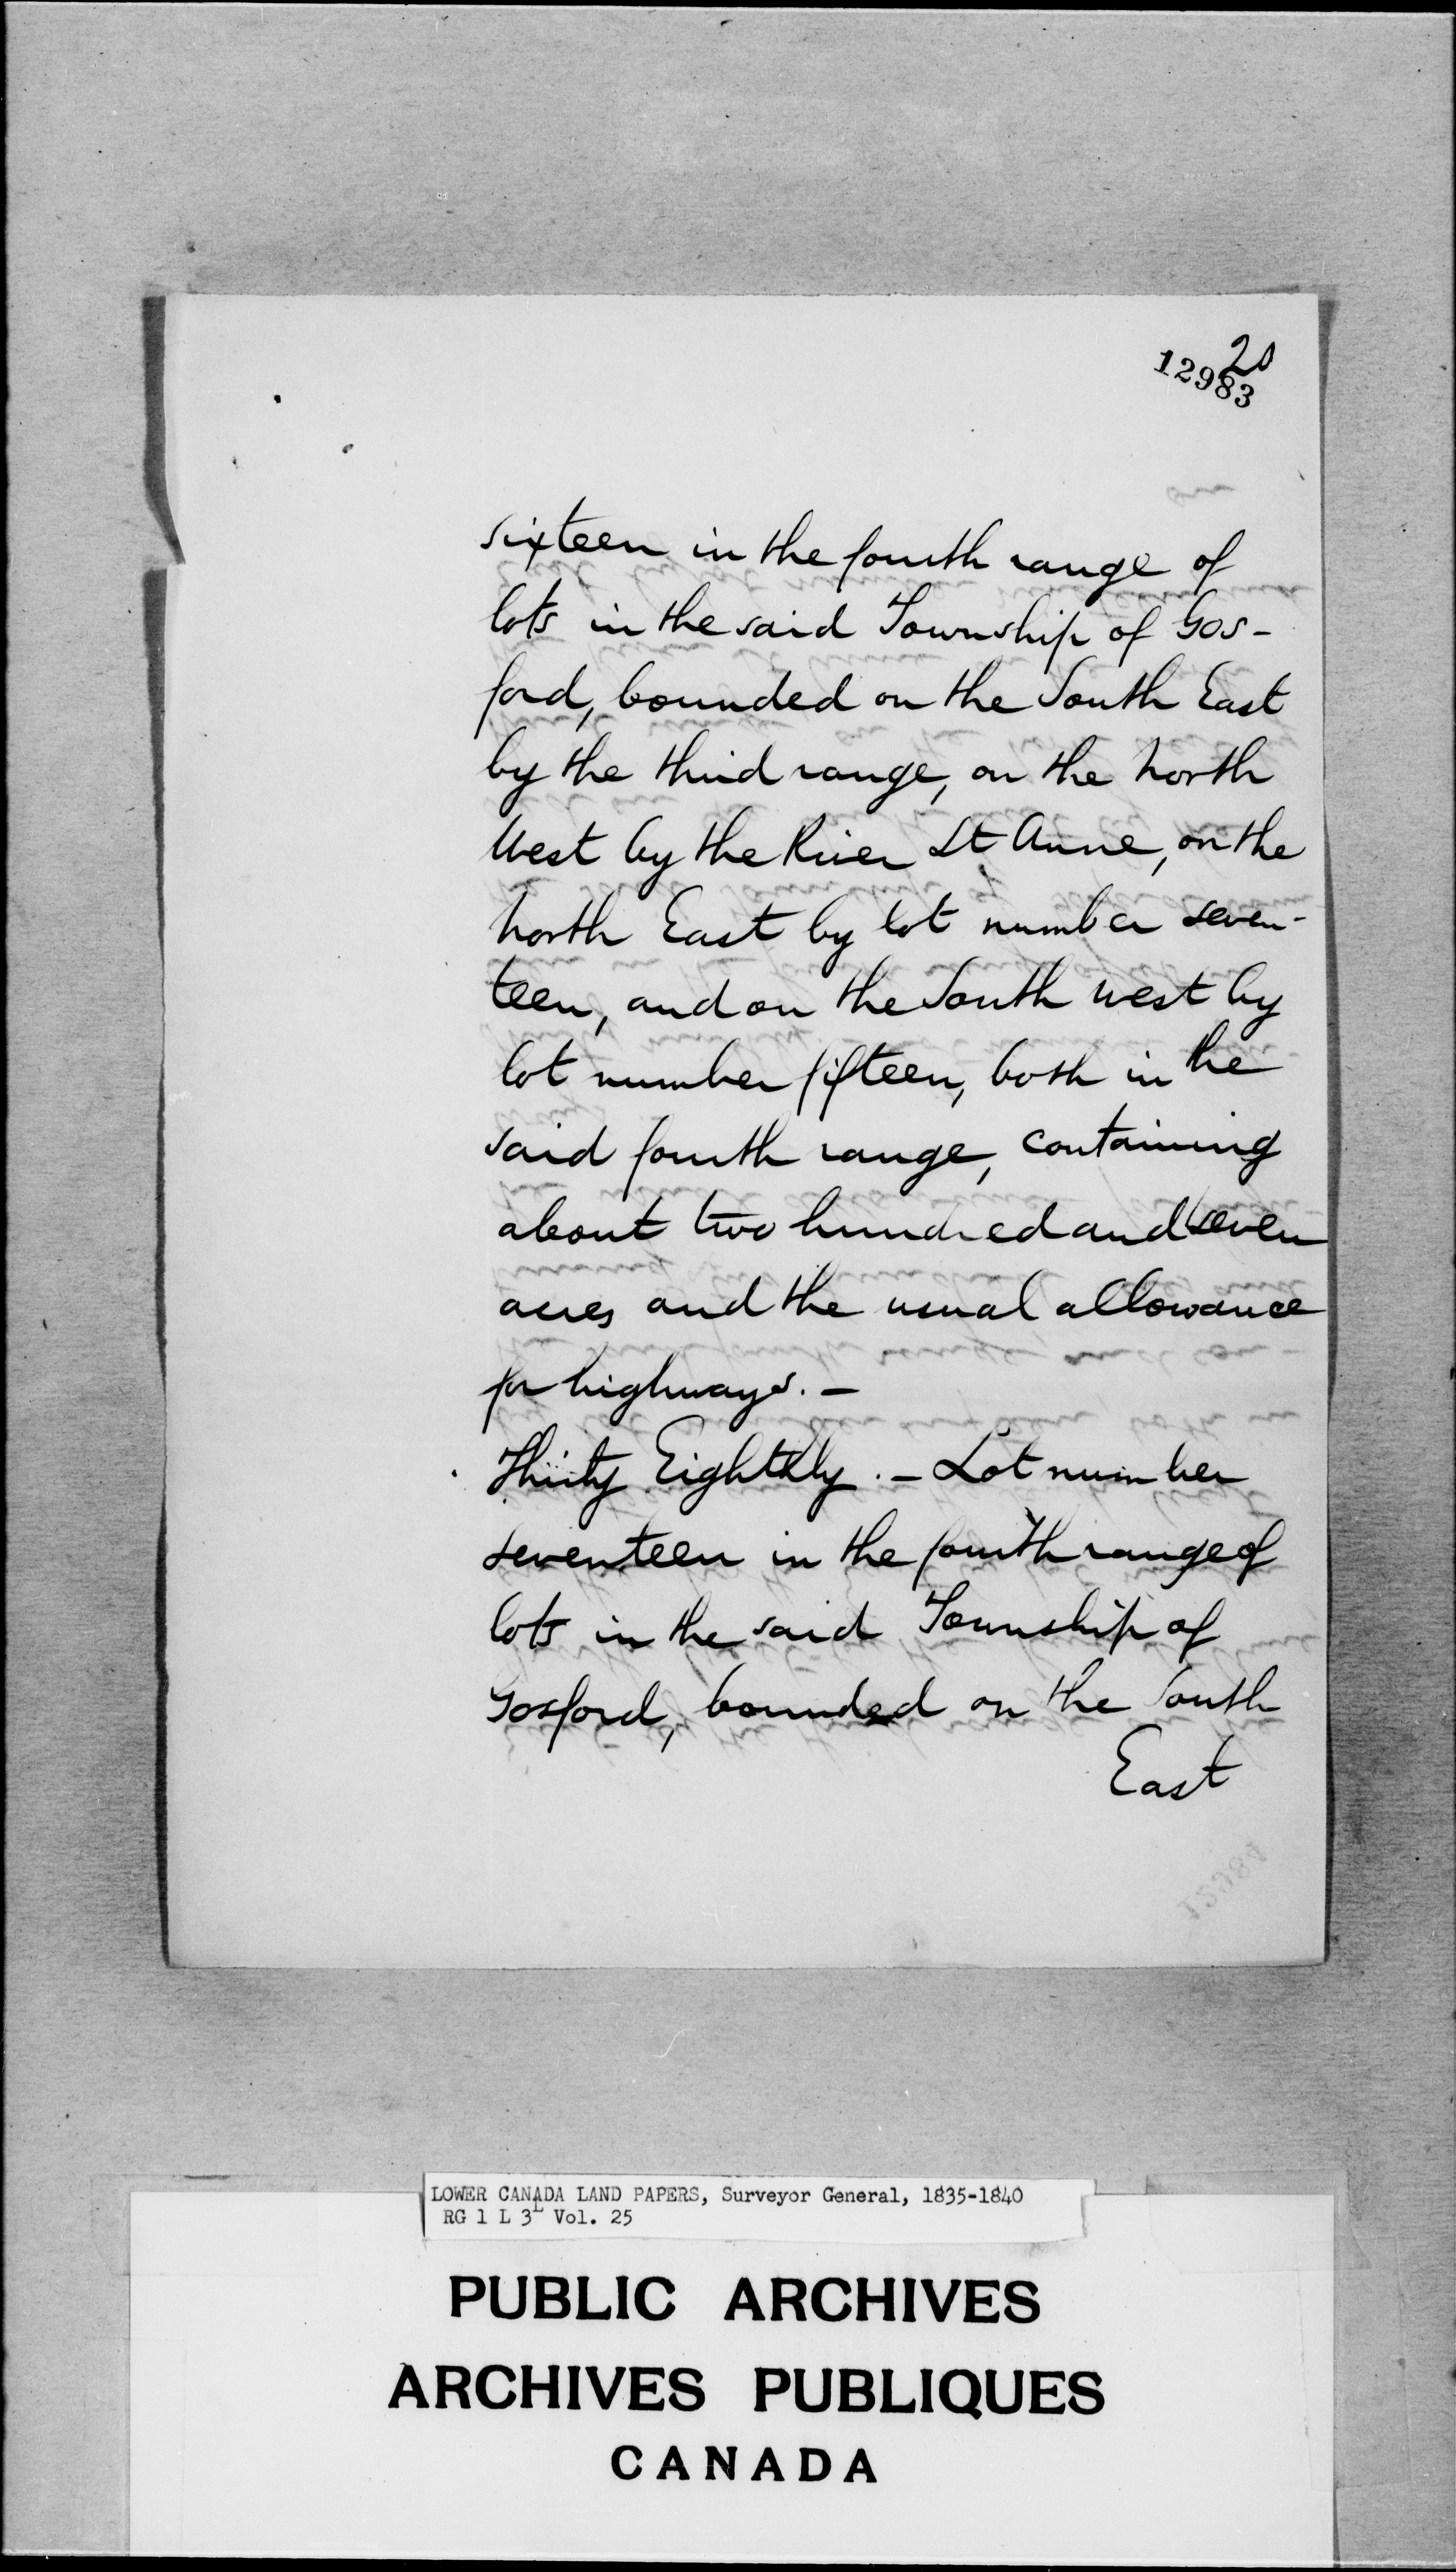 20
12983
sixteen in the fourth range of
lots in the said Township of Gos-
ford, bounded on the South East
by the third range, on the North
West by the River St Anne, on the
North East by lot number seven-
teen, and on the South West by
lot number fifteen, both in the
said fourth range, containing
about two hundred and seven
acres and the usual allowance
for highways. –
Thirty Eighthly. – Lot number
seventeen in the fourth range of
lots in the said Township of
Gosford, bounded on the South
East
LOWER CANADA LAND PAPERS, Surveyor General, 1835-1840
RG 1 L 3L Vol. 25
PUBLIC ARCHIVES
ARCHIVES PUBLIQUES
CANADA